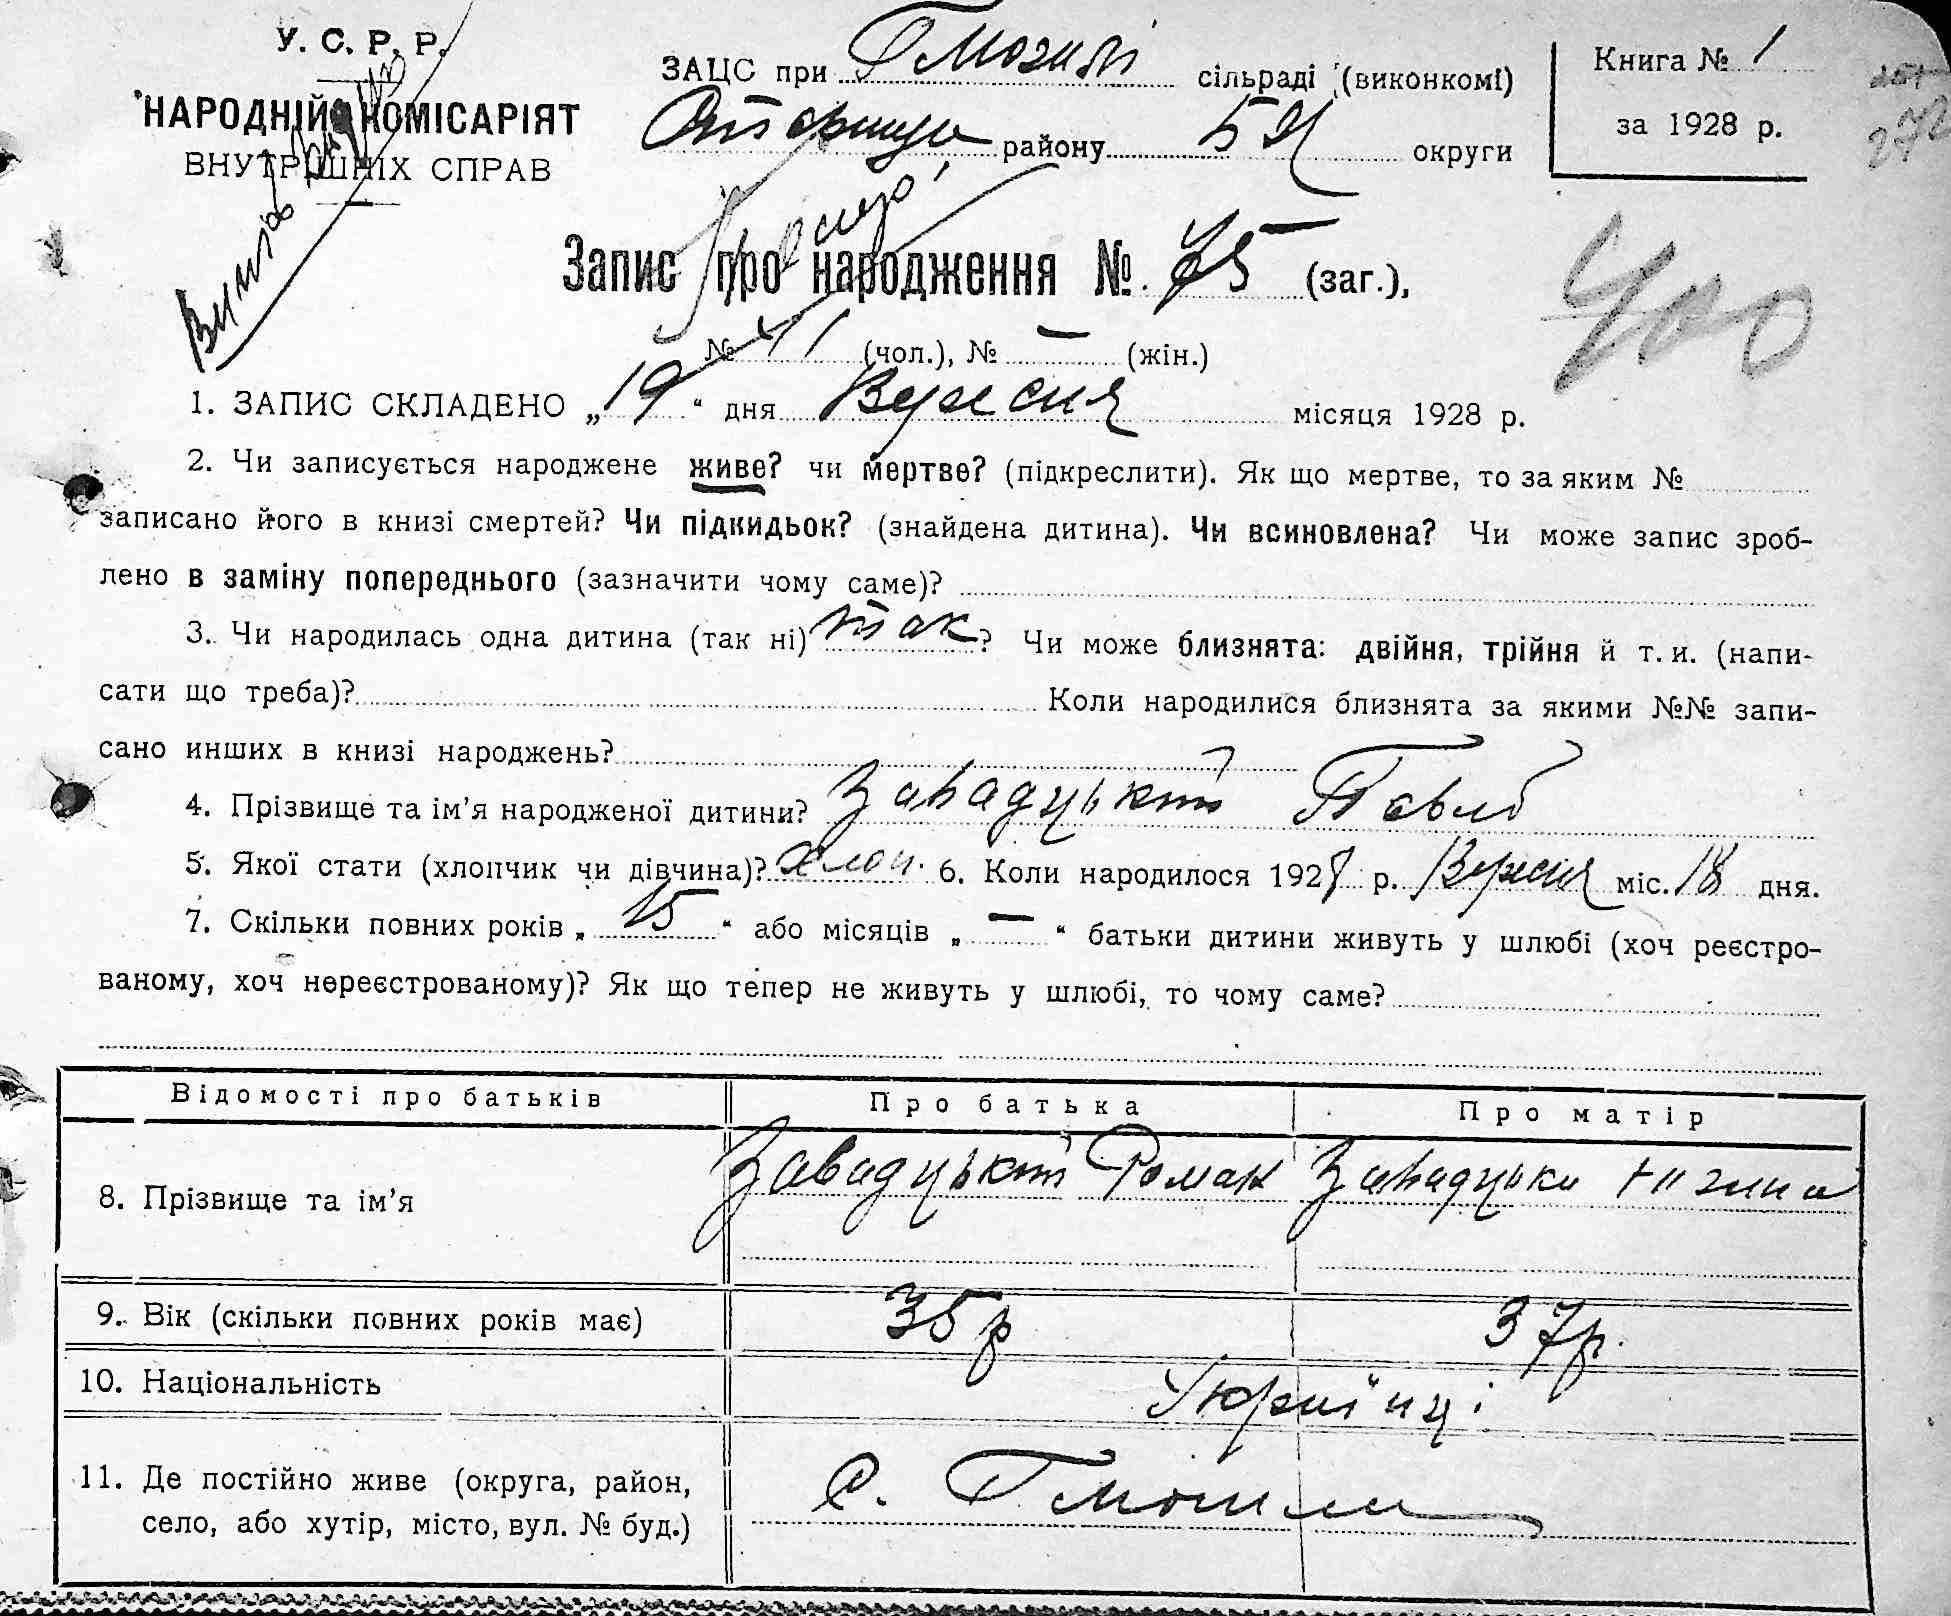 У. С. Р. Р.
НАРОДНІЙ КОМІСАРІЯТ
ВНУТРІШНІХ СПРАВ
ЗАЦС при Гмозилі сільраді (виконкомі)
району БЦ округи
Книга № 1
за 1928 р.
272
Запис про народження № 75 (заг.),
400
№ 41 (чол.), № — (жін.)
1. ЗАПИС СКЛАДЕНО „19“ дня Вересня місяця 1928 р.
2. Чи записується народжене живе? чи мертве? (підкреслити). Як що мертве, то за яким №
записано його в книзі смертей? Чи підкидьок? (знайдена дитина). Чи всиновлена? Чи може запис зроб-
лено в заміну попереднього (зазначити чому саме)?
3. Чи народилась одна дитина (так ні) так? Чи може близнята: двійня, трійня й т. и. (напи-
сати що треба)? Коли народилися близнята за якими №№ запи-
сано инших в книзі народжень?
4. Прізвище та ім’я народженої дитини? Завадцький Павло
5. Якої стати (хлопчик чи дівчина)? хлоп. 6. Коли народилося 1928 р. Вересня міс. 18 дня.
7. Скільки повних років „15“ або місяців „—“ батьки дитини живуть у шлюбі (хоч реєстро-
ваному, хоч нереєстрованому)? Як що тепер не живуть у шлюбі, то чому саме?
Відомості про батьків Про батька Про матір
8. Прізвище та ім’я Завадцький Роман Завадцька
9. Вік (скільки повних років має) 35 р 37 р.
10. Національність Українці
11. Де постійно живе (округа, район,
село, або хутір, місто, вул. № буд.) с.